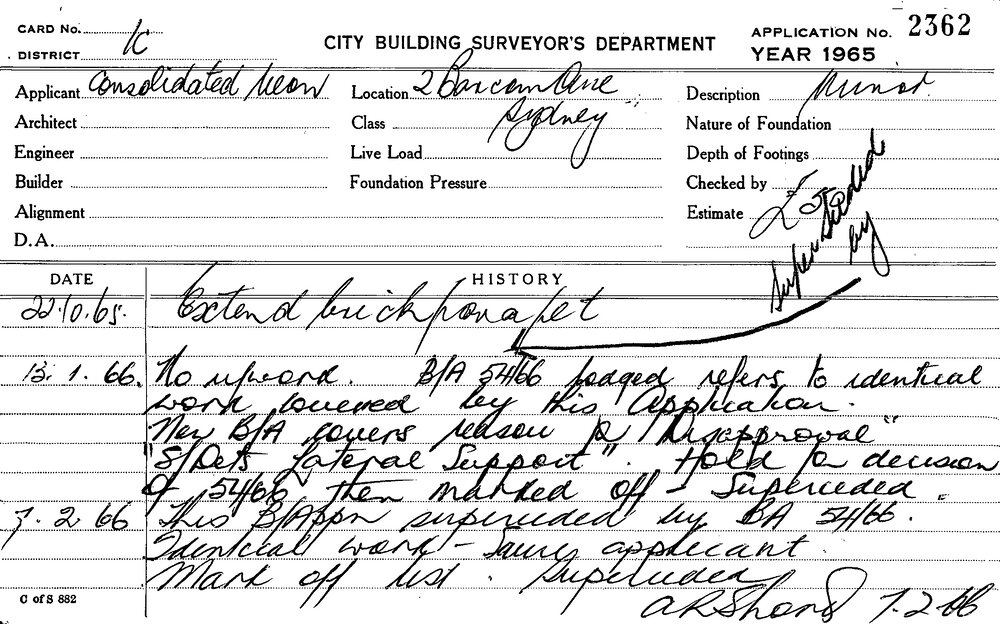 CARD No.
DISTRICT K
CITY BUILDING SURVEYOR'S DEPARTMENT
APPLICATION No. 2362
YEAR 1965
Applicant Consolidated Neon
Architect
Engineer
Builder
Alignment
D.A.
Location 2 Barcom Ave
Sydney
Class
Live Load
Foundation Pressure
Description Minor
Nature of Foundation
Depth of Footings
Checked by
Estimate £
Superseded
by
DATE
HISTORY
22.10.65. Extend brick parapet
13.1.66. No upword. B/A 54/66 lodged refers to identical
work covered by this Application.
New B/A covers reason for "Disapproval"
"S/Dets Lateral Support". Hold for decision
of 54/66 then marked off - Superceded.
7.2.66 This B/Appn superceded by BA 54/66.
Identical work - Same applicant.
Mark off list. Superceded
7.2.66
C of S 882